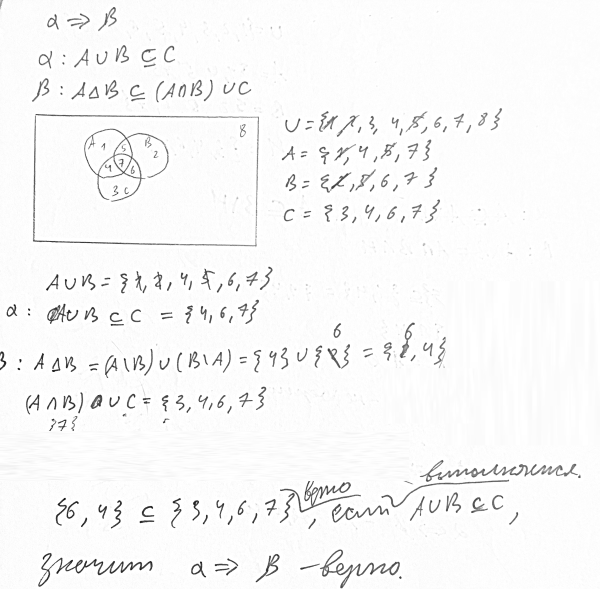 α ⇒ β
α : A ∪ B ⊆ C
β : A Δ B ⊆ (A ∩ B) ∪ C
A 1 5 B 2 8
4 7 6
3 C
U = {1, 2, 3, 4, 5, 6, 7, 8}
A = {1, 4, 5, 7}
B = {2, 5, 6, 7}
C = {3, 4, 6, 7}
A ∪ B = {1, 2, 4, 5, 6, 7}
α : A ∪ B ⊆ C = {4, 6, 7}
β : A Δ B = (A \ B) ∪ (B \ A) = {4} ∪ {6} = {6, 4}
(A ∩ B) ∪ C = {3, 4, 6, 7}
{7}
{6, 4} ⊆ {3, 4, 6, 7} верно, если A ∪ B ⊆ C выполняется,
значит α ⇒ β – верно.